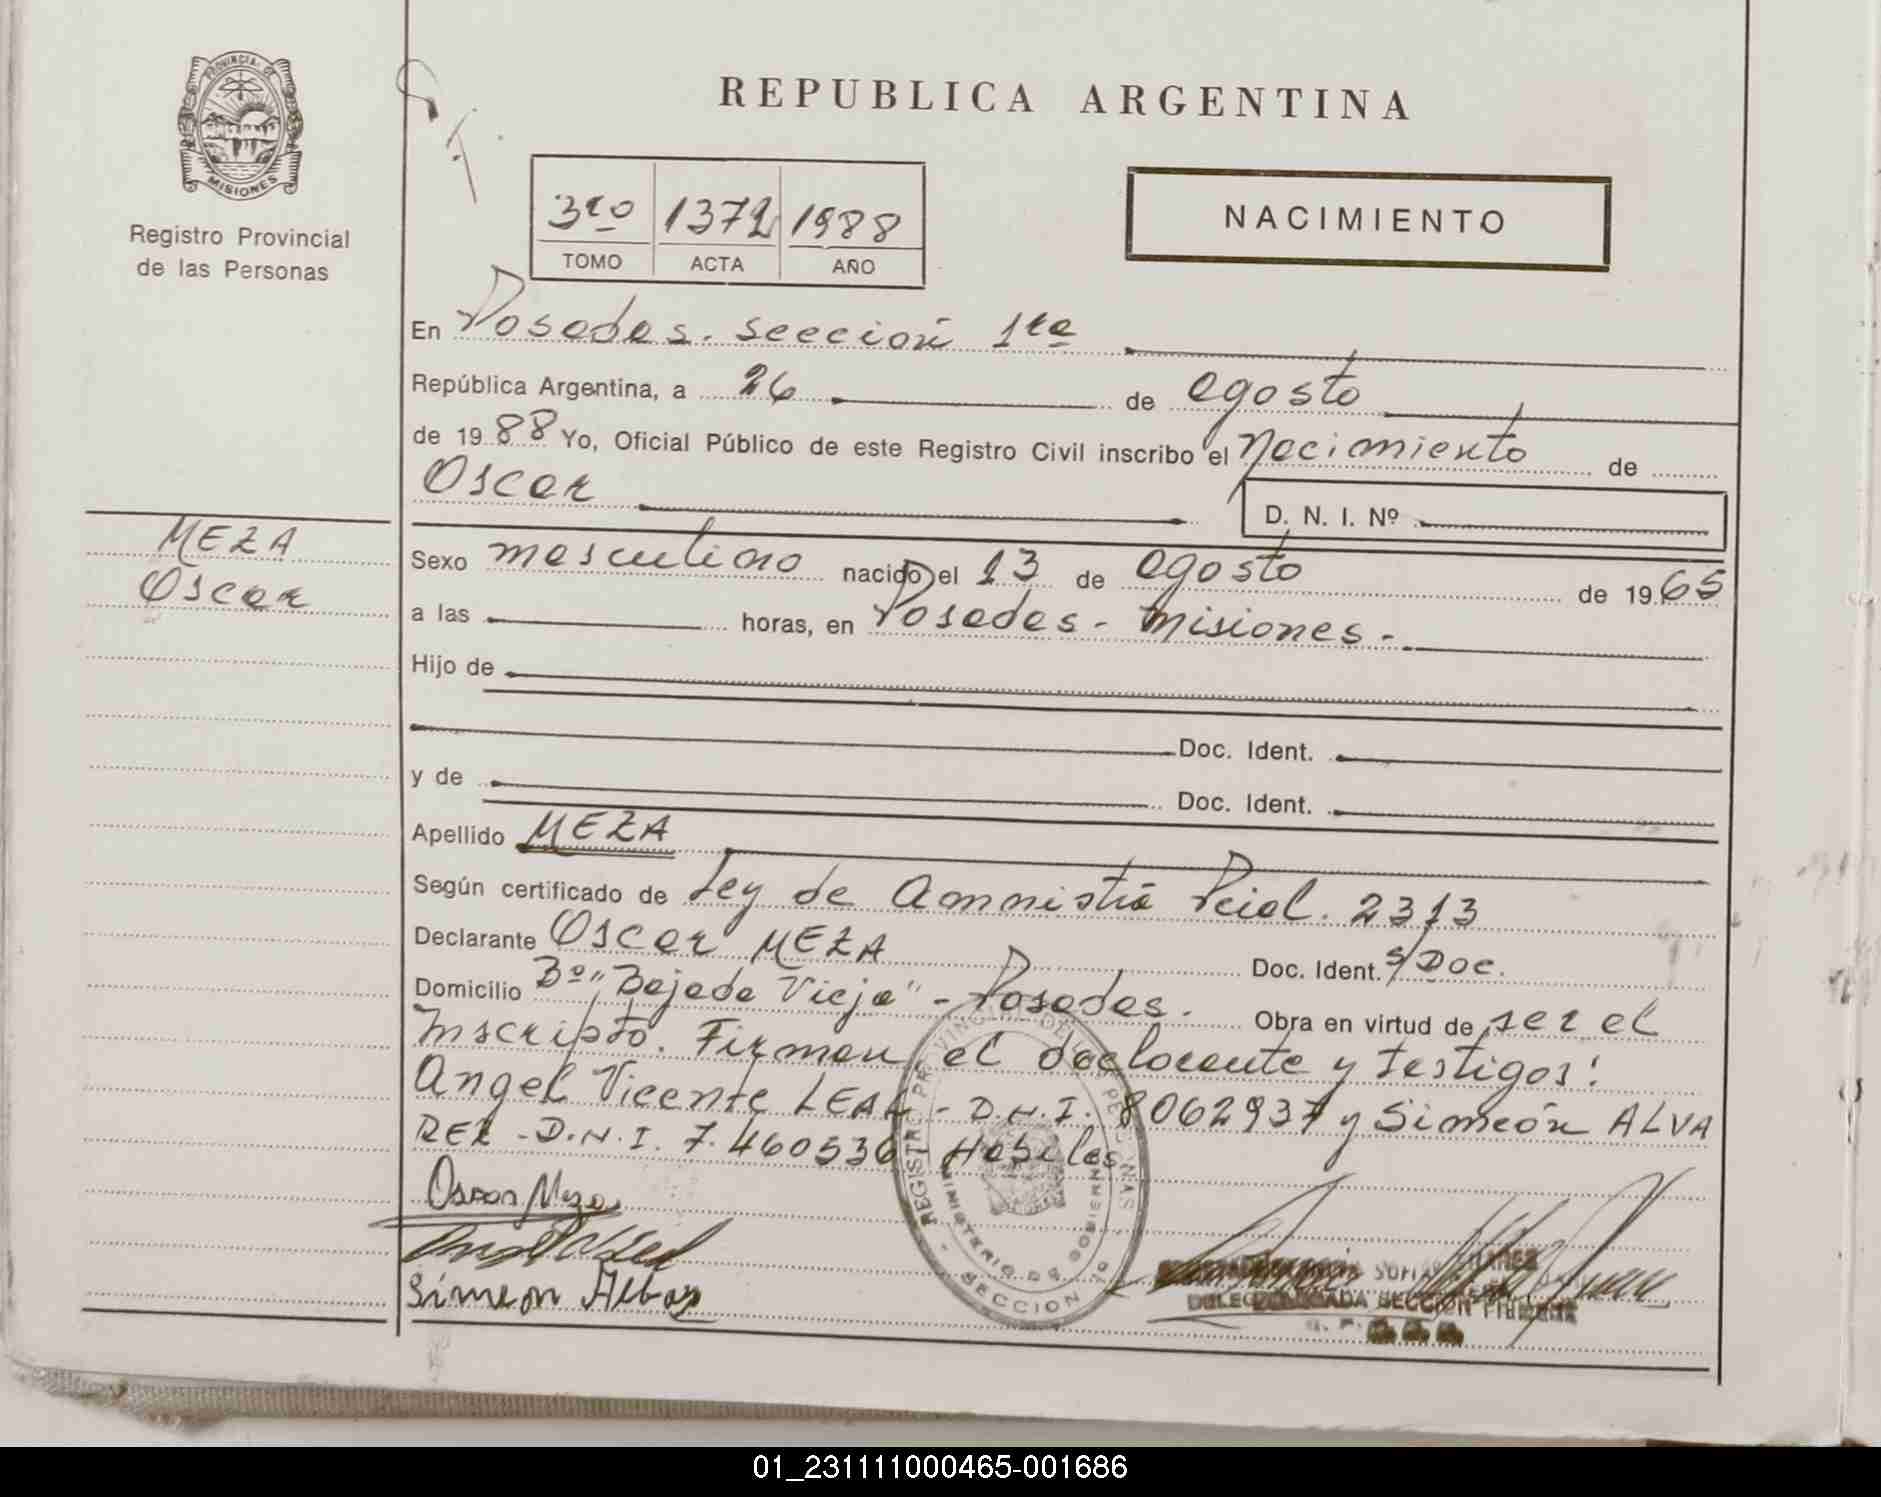 PROVINCIA DE
MISIONES
Registro Provincial
de las Personas
REPUBLICA ARGENTINA
3ro 1372 1988
TOMO ACTA AÑO
NACIMIENTO
En Posadas. sección 1ra
República Argentina, a 26 de agosto
de 1988 Yo, Oficial Público de este Registro Civil inscribo el Nacimiento de
Oscar
D. N. I. Nº
MEZA
Oscar
Sexo masculino nacido el 13 de agosto de 1965
a las horas, en Posadas - Misiones.-
Hijo de
Doc. Ident.
y de Doc. Ident.
Apellido MEZA
Según certificado de Ley de Amnistía Pcial. 2313
Declarante Oscar MEZA Doc. Ident. s/Doc.
Domicilio Bº "Bajada Vieja" - Posadas. Obra en virtud de ser el
Inscripto. Firman el declarante y testigos:
Angel Vicente LEAL - D.N.I. 8062937 y Simeón ALVA
REZ - D.N.I. 7.460536 - Habiles
Oscar Meza
Simeon Albarez
REGISTRO PROVINCIAL DE LAS PERSONAS
MINISTERIO DE GOBIERNO
SECCION 1a
01_231111000465-001686